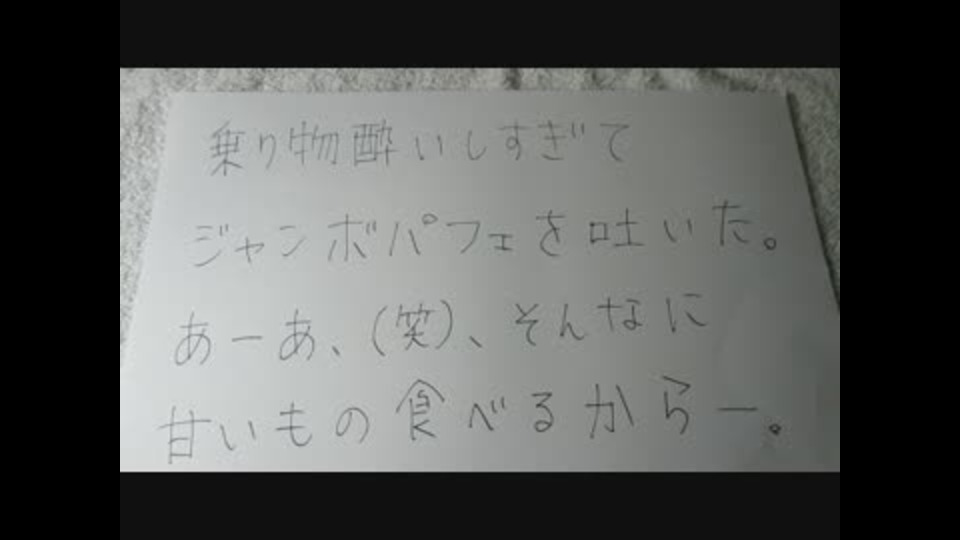 乗り物酔いしすぎて
ジャンボパフェを吐いた。
あーあ、(笑)、そんなに
甘いもの食べるからー。